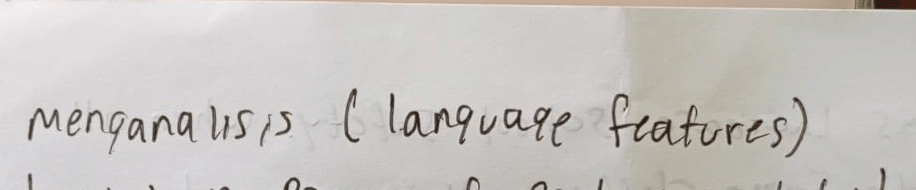 menganalisis (language features)